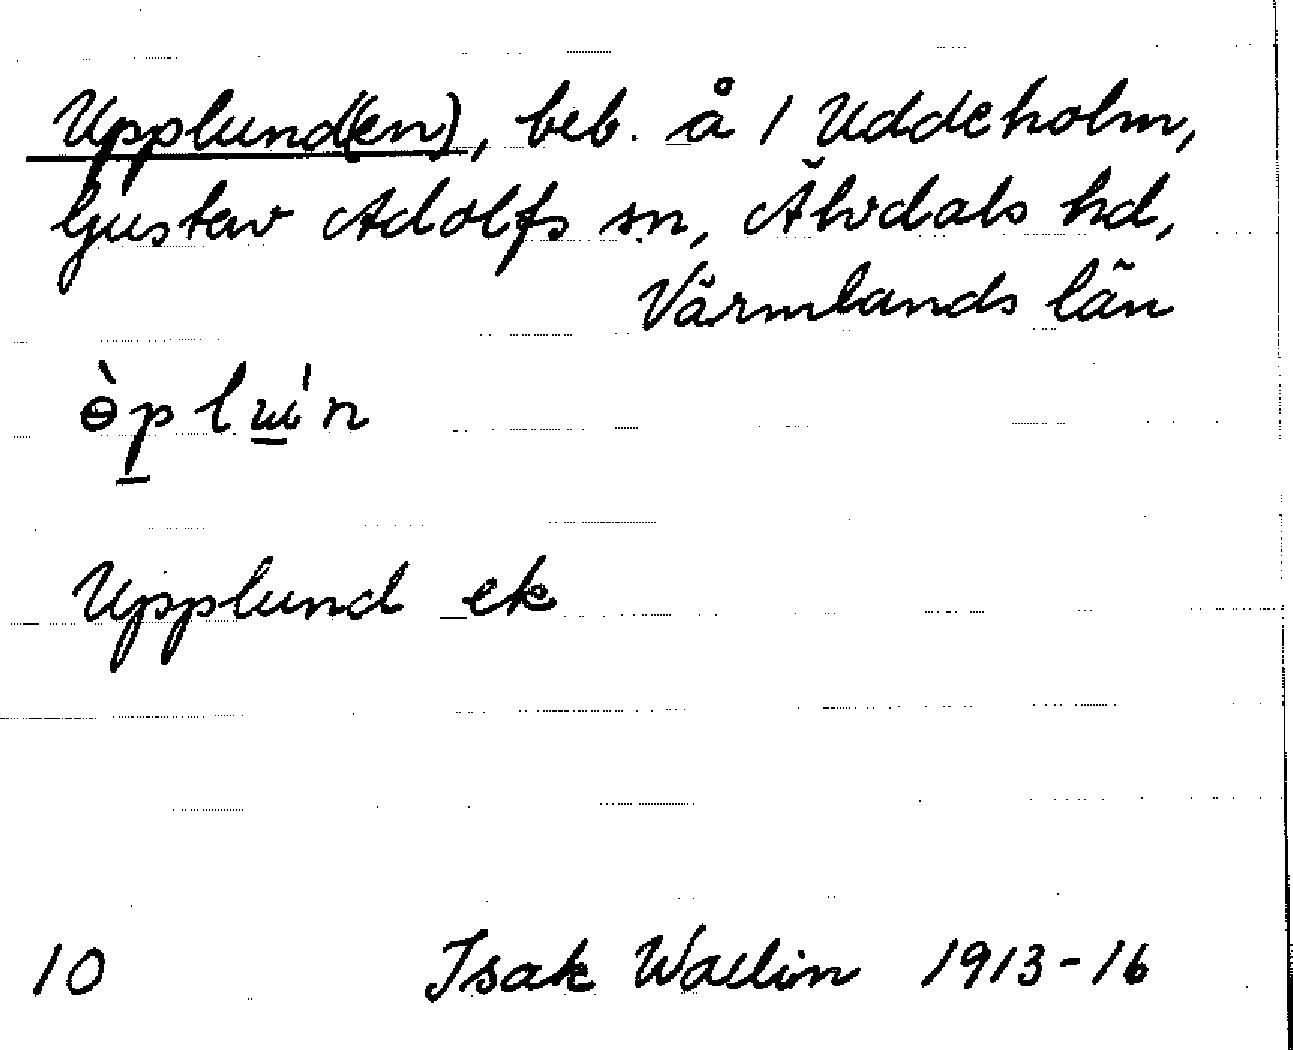 Upplund(en), beb. å 1 Uddeholm,
Gustav Adolfs sn, Älvdals hd,
Värmlands län
Upplund ek
10 Isak Wallin 1913-16